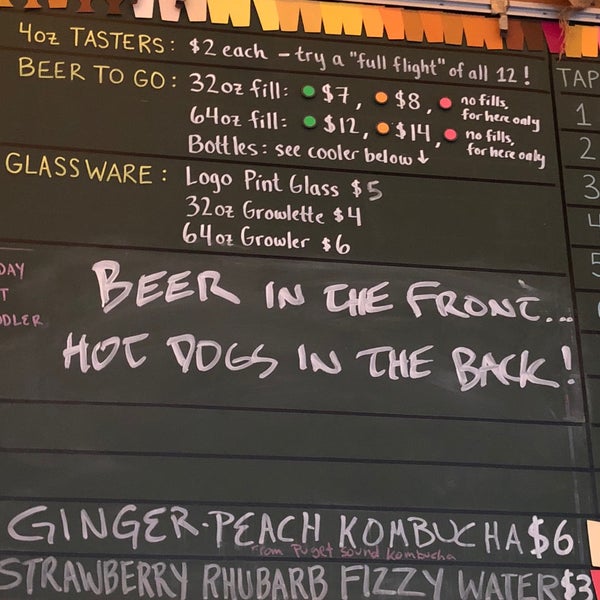 4oz TASTERS: $2 each – try a "full flight" of all 12!
BEER TO GO: 32oz fill: $7, $8, no fills, for here only
64oz fill: $12, $14, no fills, for here only
Bottles: see cooler below ↓
GLASSWARE: Logo Pint Glass $5
32oz Growlette $4
64oz Growler $6
BEER IN THE FRONT...
HOT DOGS IN THE BACK!
GINGER-PEACH KOMBUCHA $6
from Puget Sound Kombucha
STRAWBERRY RHUBARB FIZZY WATER $3
DAY
T
DLER
TAP
1
2
3
4
5